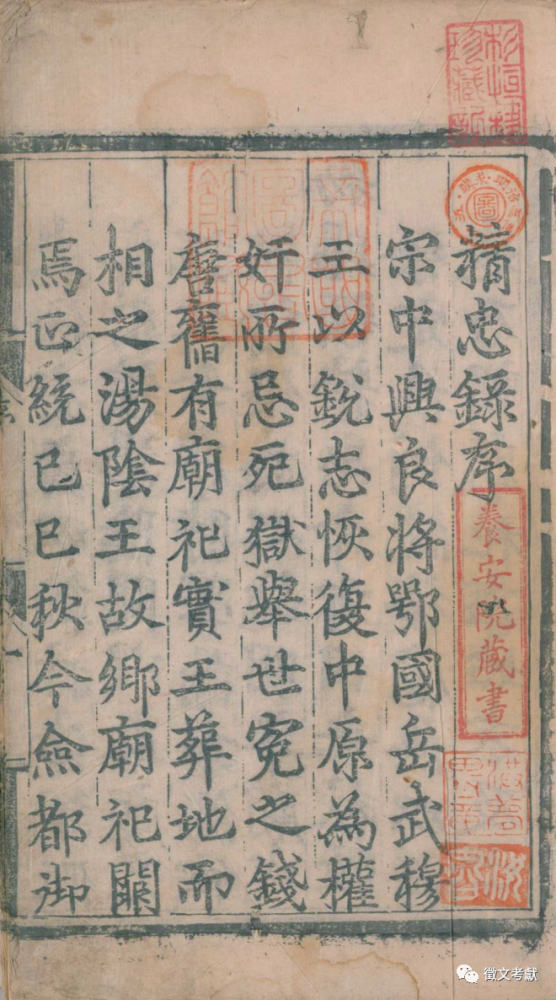 精忠錄序
宋中興良將鄂國岳武穆
王以銳志恢復中原為權
奸所忌死獄舉世冤之錢
唐舊有廟祀實王葬地而
相之湯陰王故鄉廟祀闕
焉正統己巳秋今僉都御
養安院藏書
徵文考獻